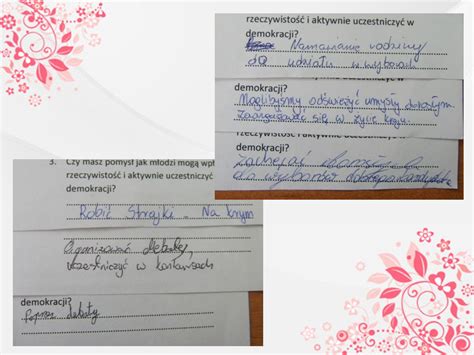 rzeczywistość i aktywnie uczestniczyć w
demokracji?
Namawianie rodziny
do udziału w wyborach
demokracji?
Moglibyśmy odświeżyć umysły dorosłym.
Zaangażować się w życie kraju.
rzeczywistość i aktywnie uczestniczyć w
demokracji?
Zachęcać
do wyborów
3. Czy masz pomysł jak młodzi mogą wpł
rzeczywistość i aktywnie uczestniczyć
demokracji?
Robić Strajki. Na
Organizować debaty,
uczestniczyć w
demokracji?
Poprzez debaty